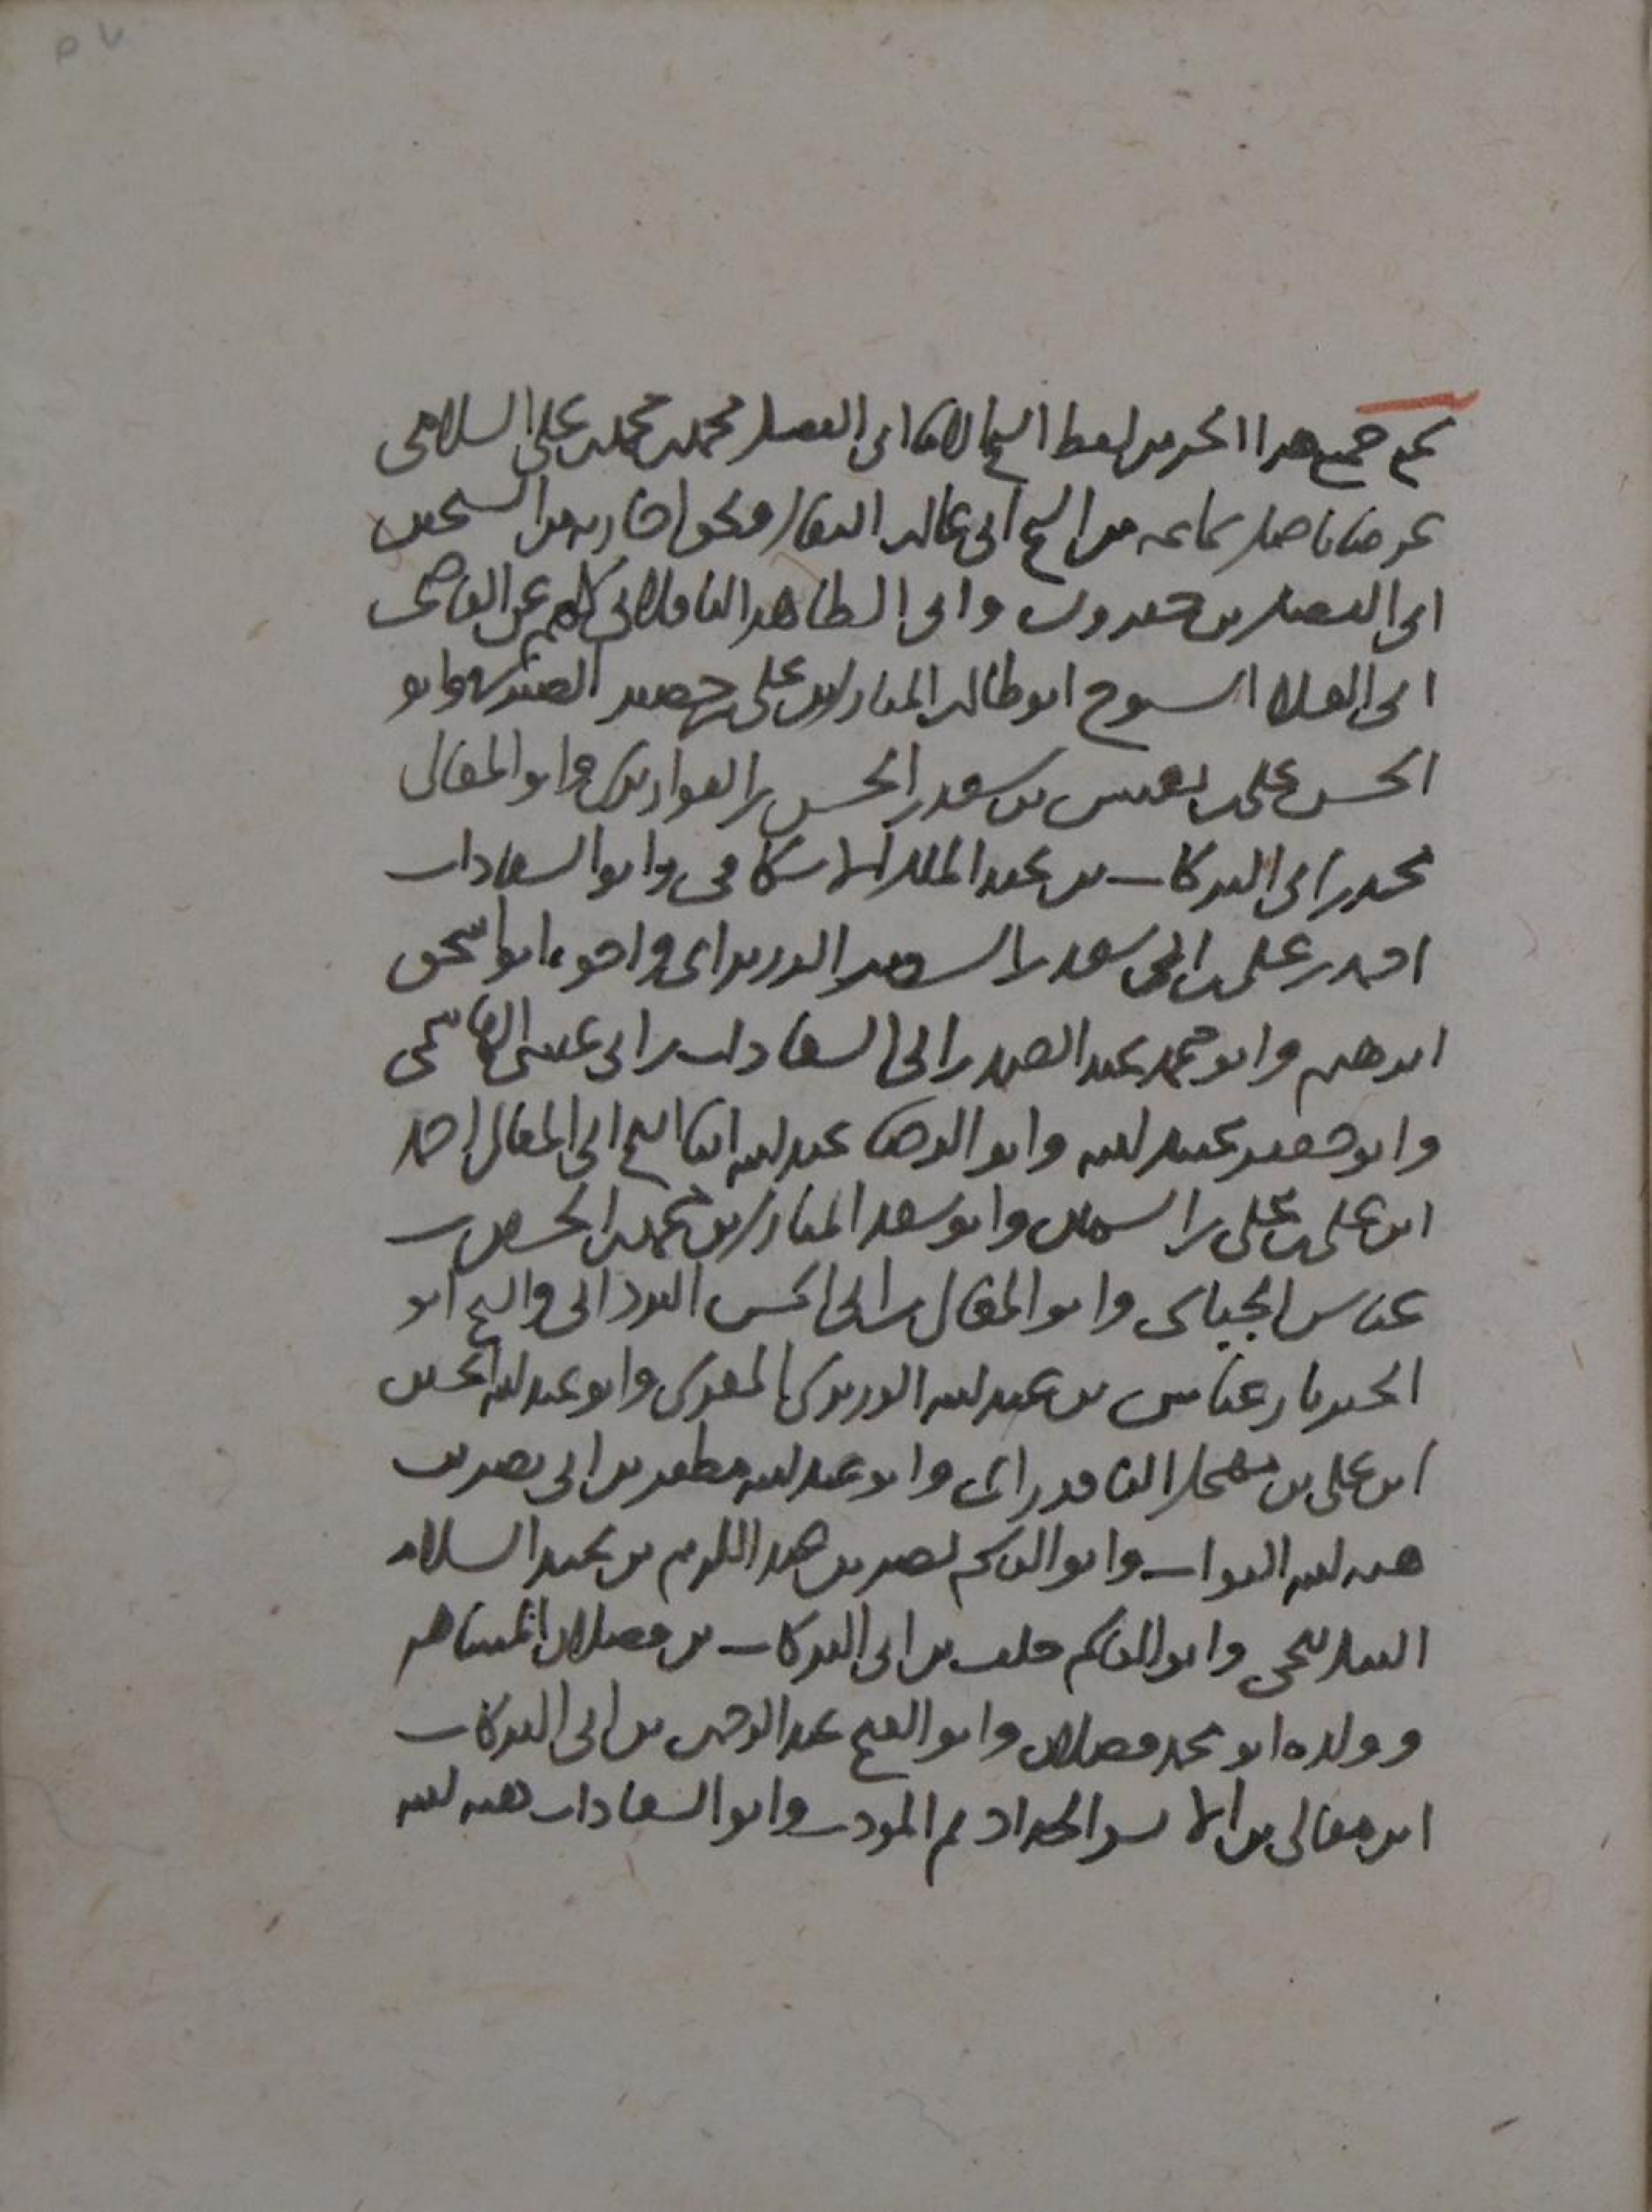 سمع جميع هذا الجزء من لفظ الشيخ الامام ابى الفضل محمد بن محمد بن على السلامى
عرضا باصل سماعه من الشيخ ابى غالب البقال وبحق اجازته من الشيخين
ابى الفضل بن خيرون وابى الطاهر الباقلانى كلهم عن القاضى
ابى العلا الشيوخ ابو طالب المبارك بن على بن خضير الصيرفى وابو
الحسن على بن بن سعد بن الحسن بن القواريرى وابو المعالى
محمد بن ابى البركات بن عبد الملك الاسكافى وابو السعادات
احمد بن على بن ابى سعد بن واخوه ابو اسحق
ابرهيم وابو محمد عبد الصمد بن ابى السعادات بن ابى عيسى الهاشمى
وابو جعفر عبيد الله وابو الرضا عبد الله ابنا الشيخ ابى المعالى احمد
ابن على بن على بن السمين وابو سعد المبارك بن محمد بن الحسين بن
عباس الجبائى وابو المعالى بن ابى الحسن البردانى والشيخ ابو
الخير بن عباس بن عبد الله المقرى وابو عبد الله الحسين
ابن على بن مهجل الباقدرائى وابو عبد الله مظفر بن ابى نصر بن
هبة الله البواب وابو القاسم نصر بن عبد الكريم بن عبد السلام
البندنيجى وابو القاسم خلف بن ابى البركات بن فضلان المشاهر
وولده ابو محمد فضلان وابو الفتح عبد الرحمن بن ابى البركات
ابن معالى بن الحداد ثم المودب وابو السعادات هبة الله